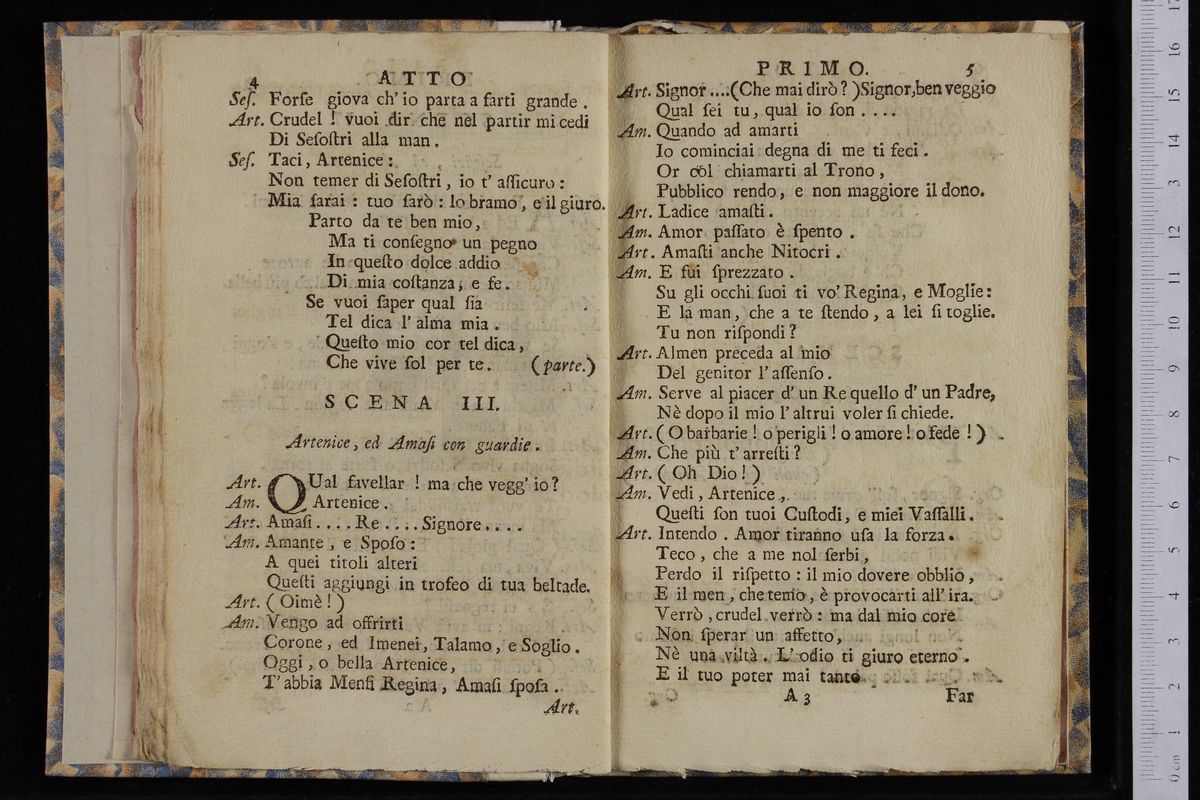 4 ATTO
Seſ. Forſe giova ch' io parta a farti grande.
Art. Crudel! vuoi dir che nel partir mi cedi
Di Seſoſtri alla man.
Seſ. Taci, Artenice:
Non temer di Seſoſtri, io t' aſſicuro:
Mia ſarai: tuo ſarò: lo bramo, e il giuro.
Parto da te ben mio,
Ma ti conſegno un pegno
In queſto dolce addio
Di mia coſtanza, e fe.
Se vuoi ſaper qual ſia
Tel dica l' alma mia.
Queſto mio cor tel dica,
Che vive ſol per te. (parte.)
SCENA III.
Artenice, ed Amaſi con guardie.
Art. QUal favellar! ma che vegg' io?
Am. Artenice.
Art. Amaſi.... Re.... Signore....
Am. Amante, e Spoſo:
A quei titoli alteri
Queſti aggiungi in trofeo di tua beltade.
Art. (Oimè!)
Am. Vengo ad offrirti
Corone, ed Imenei, Talamo, e Soglio.
Oggi, o bella Artenice,
T' abbia Menfi Regina, Amaſi ſpoſa.
Art.
PRIMO. 5
Art. Signor....(Che mai dirò?)Signor,ben veggio
Qual ſei tu, qual io ſon....
Am. Quando ad amarti
Io cominciai degna di me ti feci.
Or còl chiamarti al Trono,
Pubblico rendo, e non maggiore il dono.
Art. Ladice amaſti.
Am. Amor paſſato è ſpento.
Art. Amaſti anche Nitocri.
Am. E fui ſprezzato.
Su gli occhi ſuoi ti vo' Regina, e Moglie:
E la man, che a te ſtendo, a lei ſi toglie.
Tu non riſpondi?
Art. Almen preceda al mio
Del genitor l' aſſenſo.
Am. Serve al piacer d' un Re quello d' un Padre,
Nè dopo il mio l' altrui voler ſi chiede.
Art. (O barbarie! o perigli! o amore! o fede!)
Am. Che più t' arreſti?
Art. (Oh Dio!)
Am. Vedi, Artenice.
Queſti ſon tuoi Cuſtodi, e miei Vaſſalli.
Art. Intendo. Amor tiranno uſa la forza.
Teco, che a me nol ſerbi,
Perdo il riſpetto: il mio dovere obblio,
E il men, che temo, è provocarti all' ira.
Verrò, crudel verrò: ma dal mio core
Non ſperar un affetto,
Nè una viltà. L' odio ti giuro eterno.
E il tuo poter mai tanto
A 3 Far